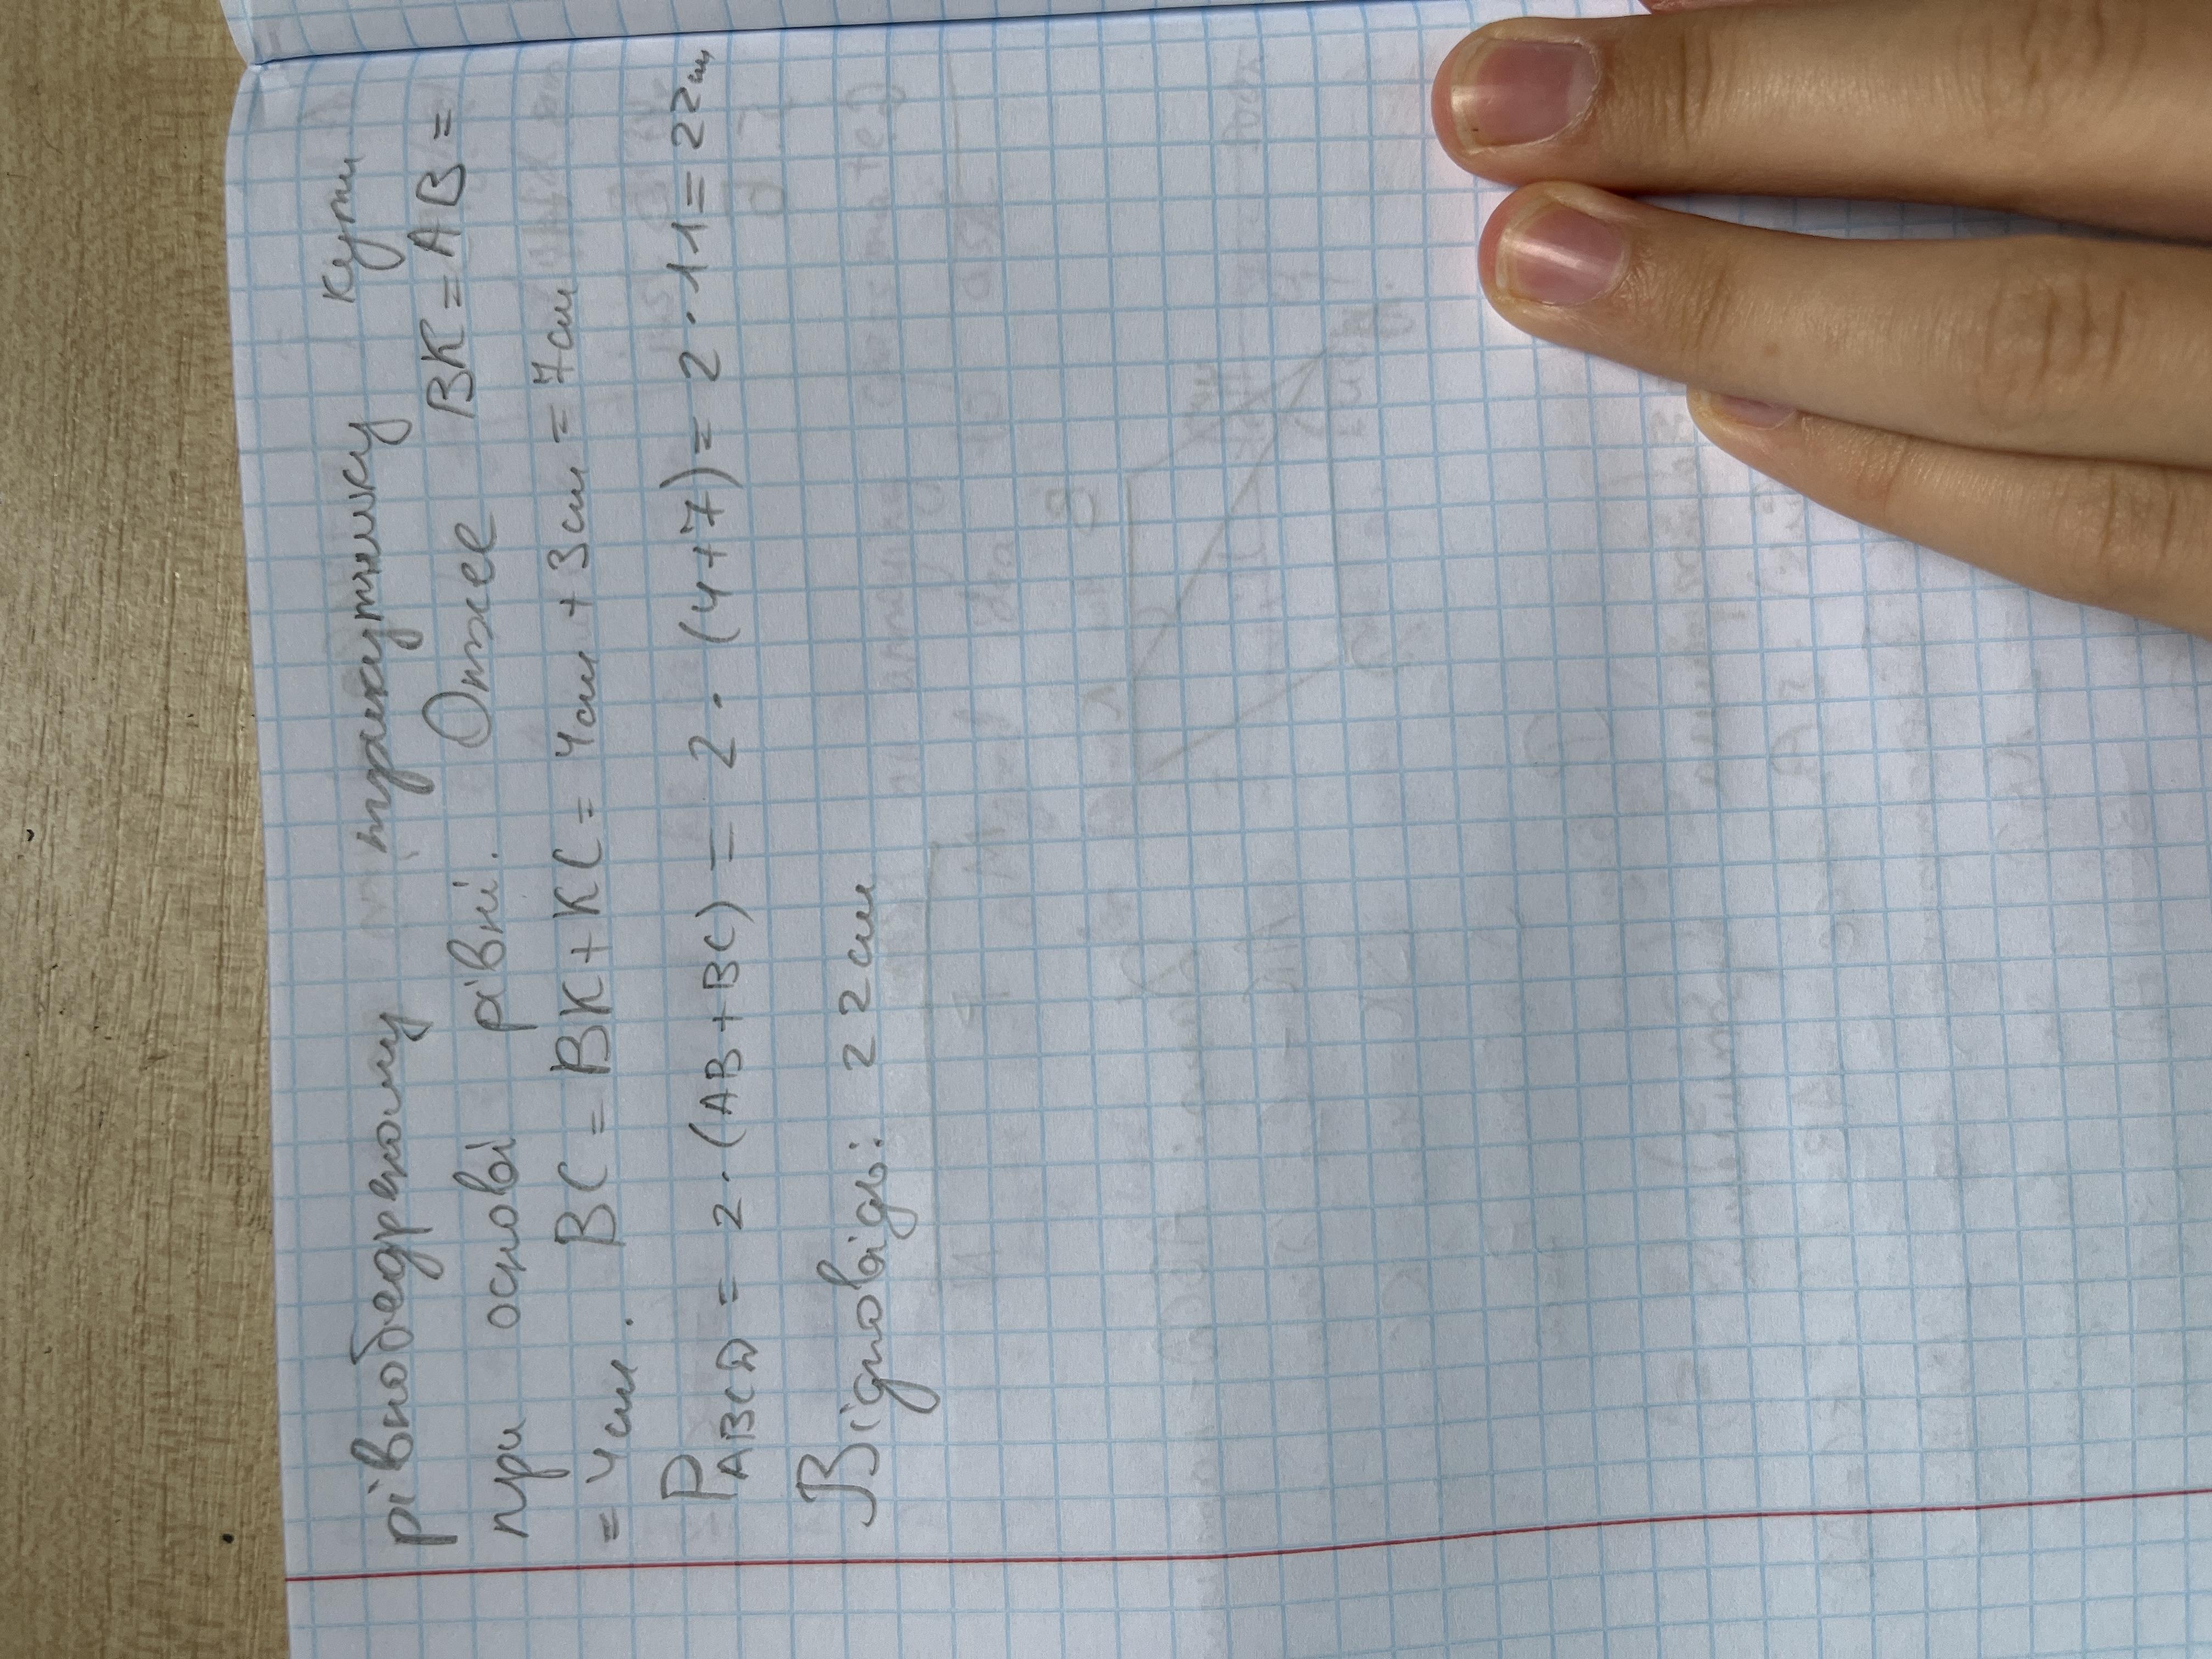 рівнобедреному трикутнику кути
при основі рівні. Отже BK = AB =
= 4см. BC = BK + KC = 4см + 3см = 7см
P ABCD = 2 · (AB + BC) = 2 · (4+7) = 2 · 11 = 22см
Відповідь: 22см